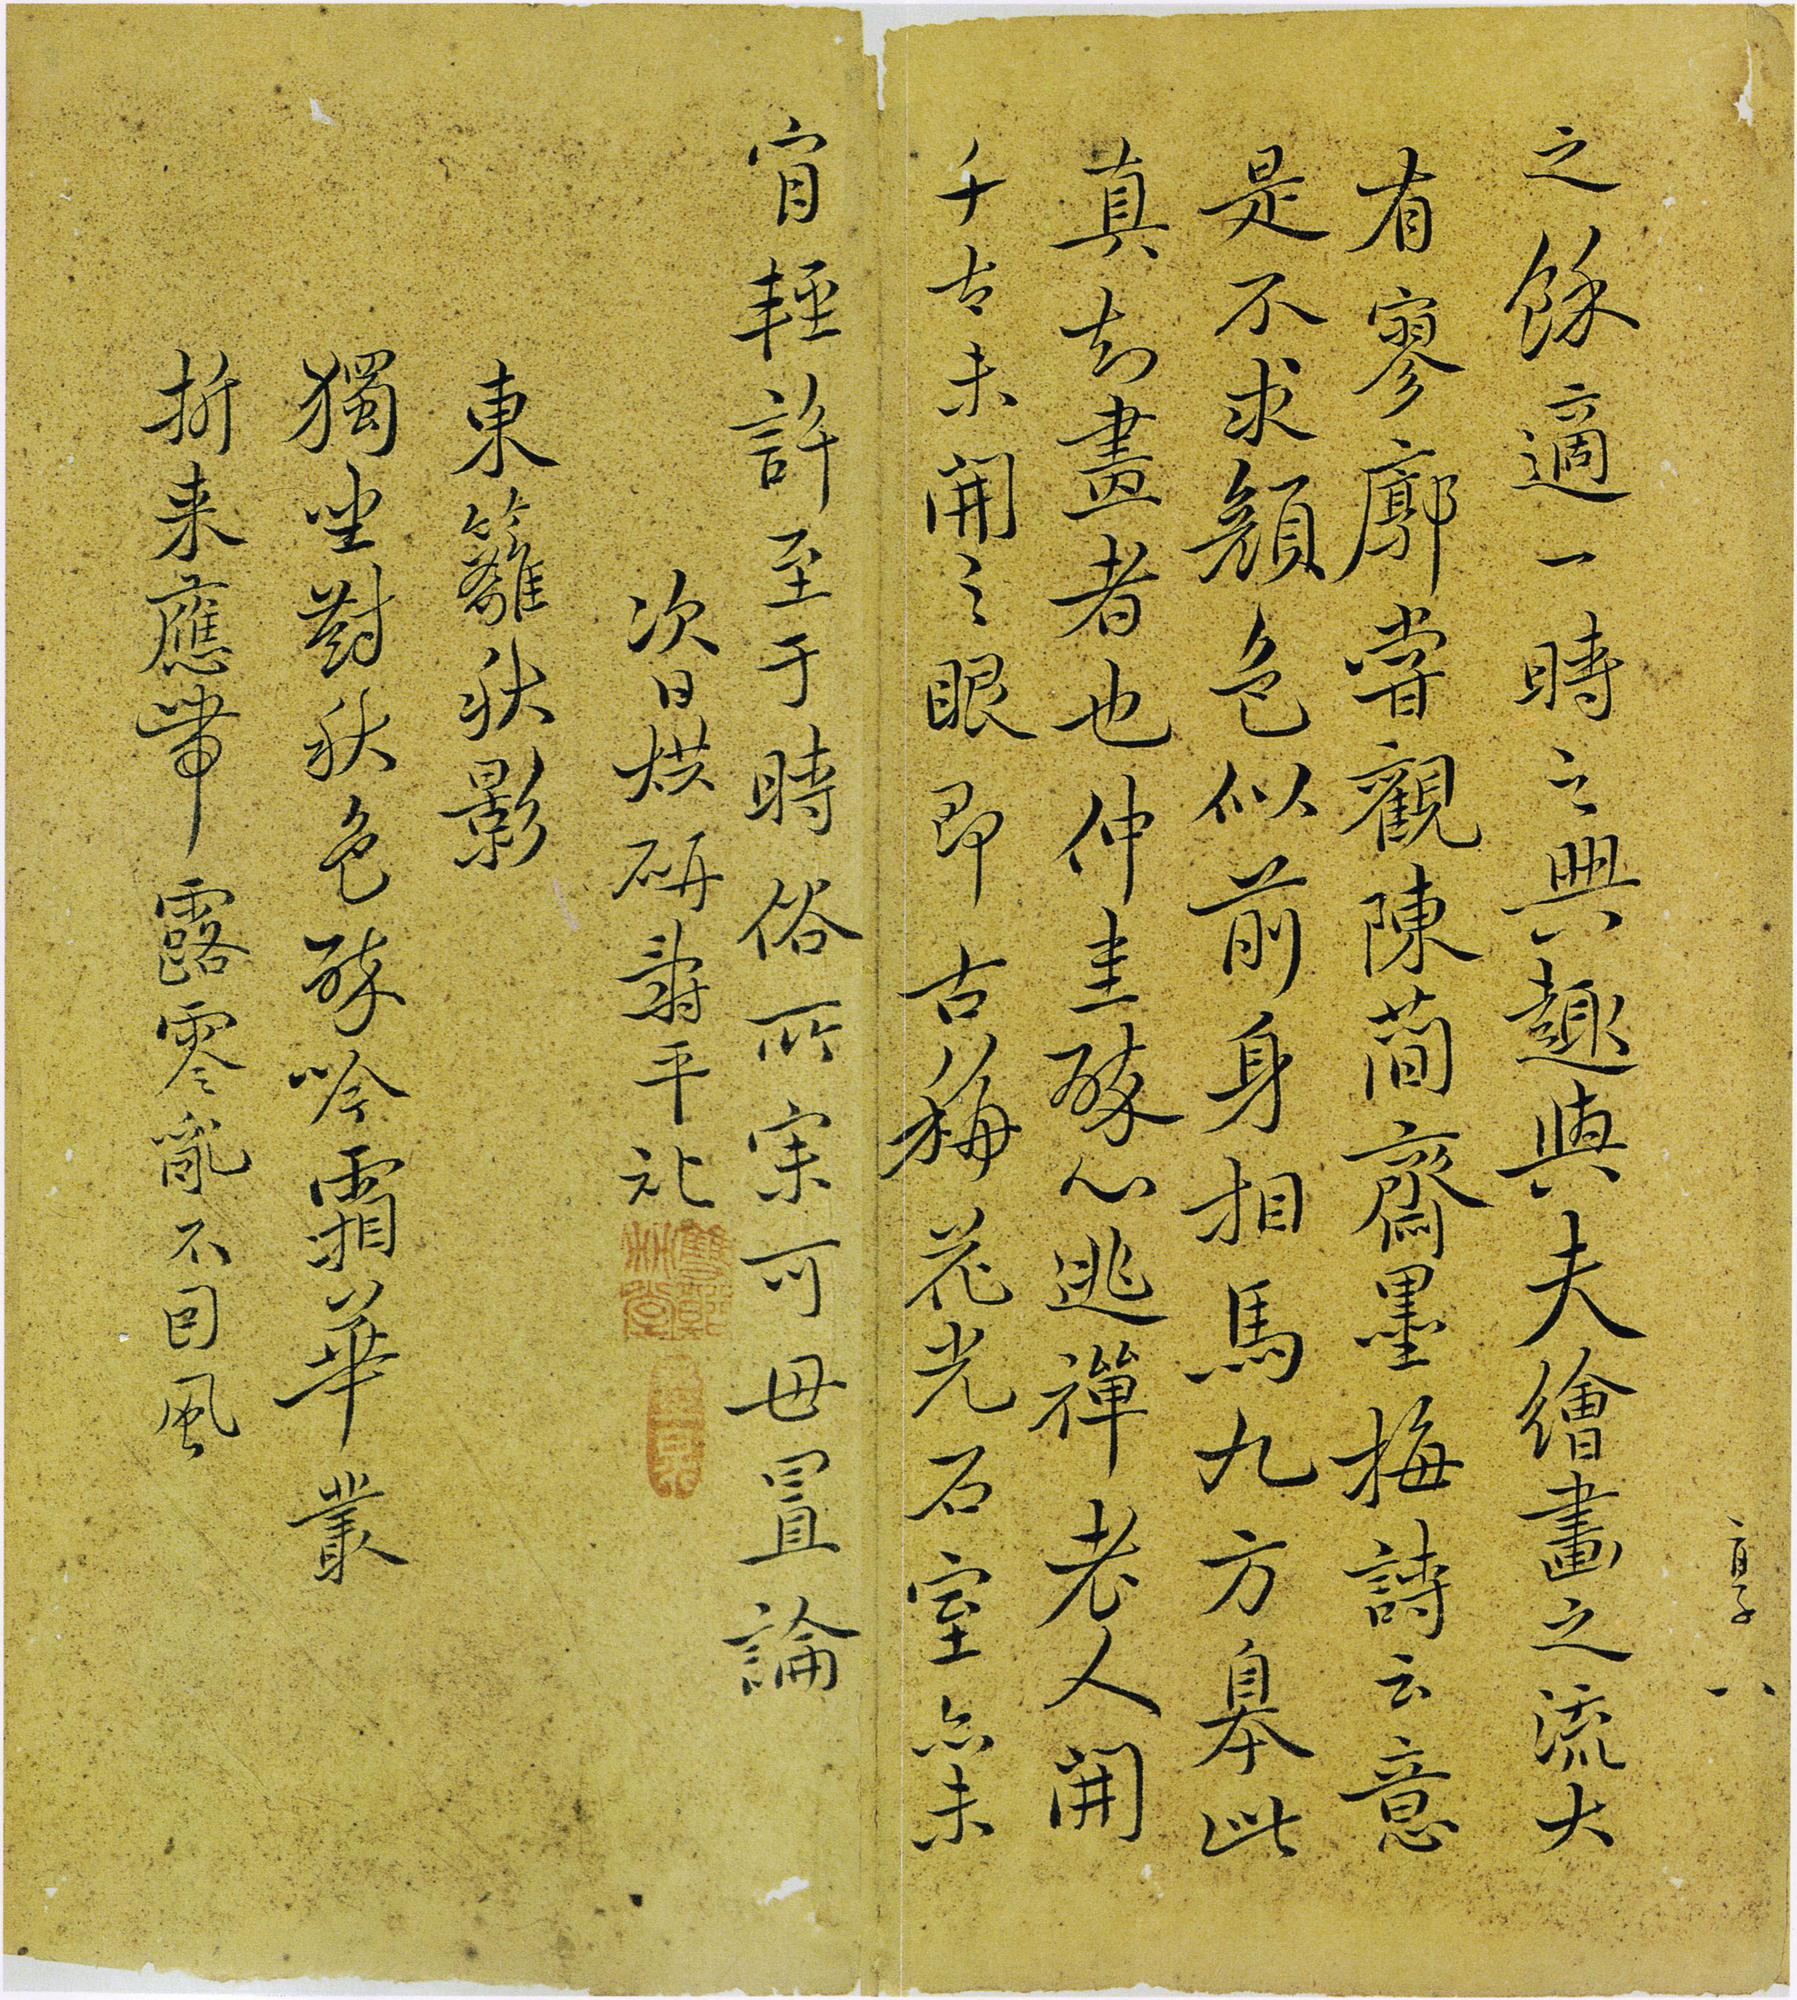 之餘適一時之興趣與夫繪畫之流大
有寥廓嘗觀陳簡齋墨梅詩云意
是不求顏色似前身相馬九方皋此
真知畫者也仲圭醉心逃禪老人開
千古未開之眼即古梅花光石室亦未
肯輕許至于時俗所宗可毋置論
次日烘研壽平記
東籬秋影
獨坐對秋色醉吟霜華叢
折来應帶露零亂不因風
享 八